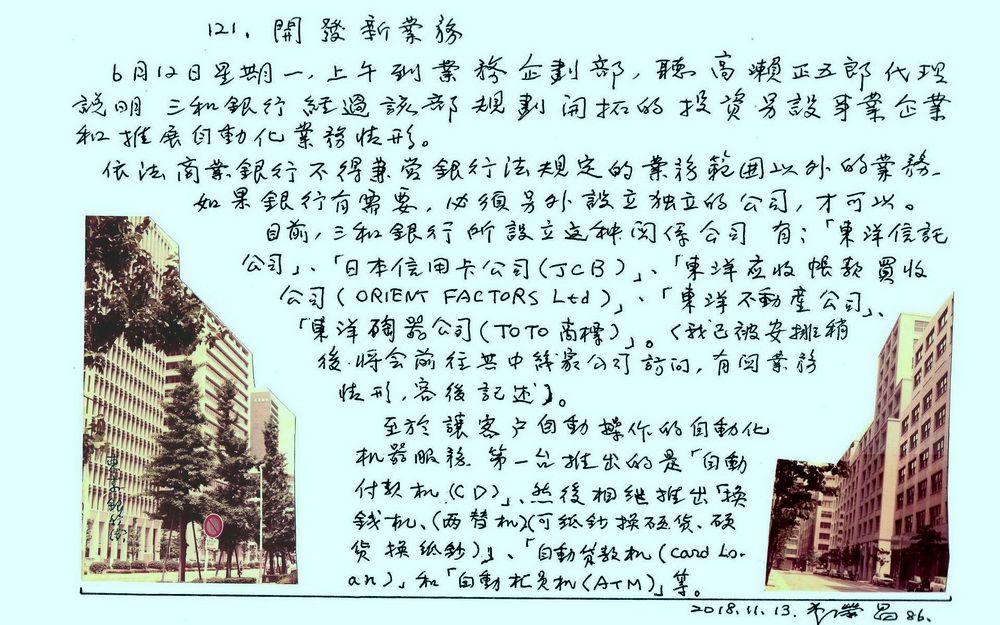 121. 開發新業務
6月12日星期一,上午到業務企劃部,聽高瀨正五郎代理
說明三和銀行經過該部規劃開拓的投資另設事業企業
和推展自動化業務情形。
依法商業銀行不得兼營銀行法規定的業務範围以外的業務。
如果銀行有需要,必須另外設立独立的公司,才可以。
目前,三和銀行所設立这种関係公司有:「東洋信託
公司」、「日本信用卡公司(JCB)」、「東洋应收帳款買收
公司(ORIENT FACTORS Ltd)」、「東洋不動產公司」、
「東洋陶器公司(TOTO商標)」。(我已被安排稍
後將会前往其中幾家公司訪问,有関業務
情形,容後記述)。
至於讓客户自動操作的自動化
机器服務第一台推出的是「自動
付款机(CD)」、然後相継推出「換
錢机、(両替机)(可紙鈔換硬货、硬
货換紙鈔)」、「自動贷款机(Card Lo-
an)」和「自動柜員机(ATM)」等。
2018.11.13. 榮昌 86.